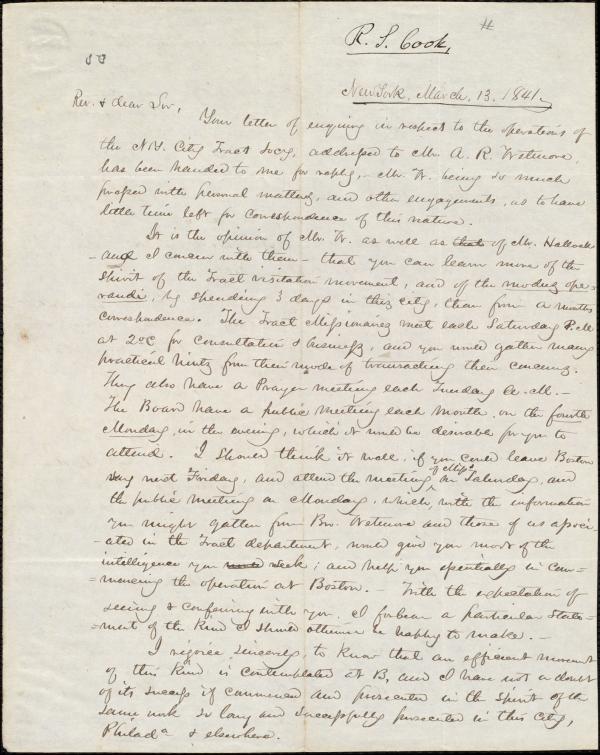 R. S. Cook,
New York, March, 13. 1841.
Rev. & dear Sir,
Your letter of enquiry in respect to the operations of
the N.Y. City Tract Socy, addressed to Mr. A. R. Wetmore,
has been handed to me for reply,- Mr. W. being so much
pressed with personal matters, and other engagements, as to have
little time left for correspondence of this nature.
It is the opinion of Mr. W. as well as that of Mr. Hallock
-and I concur with them- that you can learn more of the
spirit of the Tract visitation movement, and of the modus ope-
randi, by spending 3 days in this city, than from a months
correspondence. The Tract Missionaries meet each Saturday P.M
at 2 oc for Consultation & business, and you would gather many
practical hints from their mode of transacting their concerns.
They also have a Prayer meeting each Tuesday A.M.-
The Board have a public meeting each month, on the fourth
Monday, in the evening, which it would be desirable for you to
attend. I should think it well, if you could leave Boston
say next Friday, and attend the meeting of Miss. on Saturday, and
the public meeting on Monday, which, with the information
you might gather from Bro. Wetmore and those of us associ-
-ated in the Tract department, would give you most of the
intelligence you seek; and help you essentially in com-
=mencing the operation at Boston.- With the expectation of
seeing & conferring with you, I forbear a particular state-
=ment of the kind I should otherwise be happy to make.-
I rejoice sincerely, to know that an efficient movement
of this kind is contemplated at B, and I have not a doubt
of its success if commenced and prosecuted in the spirit of the
same work so long and successfully prosecuted in this City,
Philada & elsewhere.